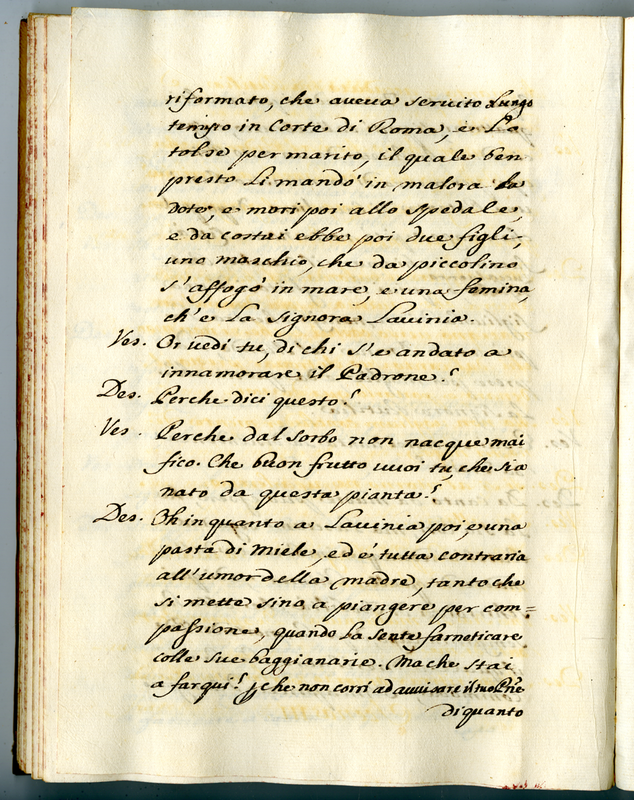 riformato, che aveva servito Lungo
tempo in Corte di Roma, e La
tolse per marito, il quale ben
presto Li mandò in malora la
dote, e morì poi allo spedale,
e da costui ebbe poi due figli,
uno maschio, che da piccolino
s'affogò in mare, e una femina,
ch'è La Signora Lavinia.
Ves. Or vedi tu, di chi s'è andato a
innamorare il Padrone!
Des. Perche dici questo?
Ves. Perche dal sorbo non nacque mai
fico. Che buon frutto vuoi tu, che sia
nato da questa pianta?
Des. Oh in quanto a Lavinia poi, e una
pasta di Miele, ed è tutta contraria
all'umor della madre, tanto che
si mette sino a piangere per com=
passione, quando La sente farneticare
colle sue baggianarie. Ma che stai
a far qui? che non corri ad avvisare il tuo Pne
di quanto